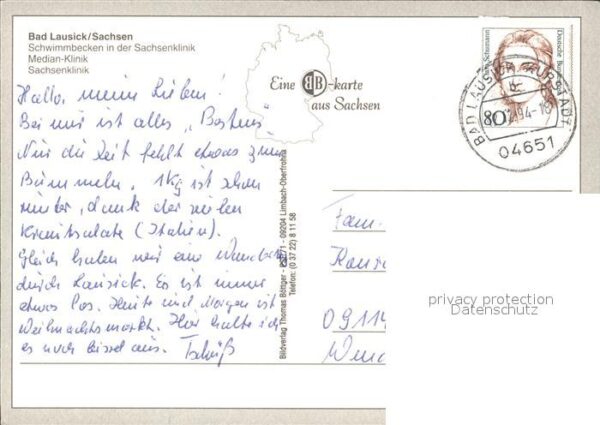 Bad Lausick/Sachsen
Schwimmbecken in der Sachsenklinik
Median-Klinik
Sachsenklinik
Hallo, meine Lieben!
Bei mir ist alles „Bestens".
Nur die Zeit fehlt etwas zum
Bummeln. 1kg ist schon
runter, dank der vielen
Krautsalate (Italien).
Gleich haben wir eine
durch Lausick. Es ist immer
etwas los. Heute und Morgen ist
Weihnachtsmarkt. Hier halte ich
es noch bissel aus. Tschüß
Eine BB-karte
aus Sachsen
Bildverlag Thomas Böttger - PSF/1 - 09204 Limbach-Oberfrohna
Telefon: (0 37 22) 8 11 58
Clara Schumann
Deutsche Bundes
80
BAD LAUSICK, KURSTADT
94-18
04651
Fam.
0911
privacy protection
Datenschutz